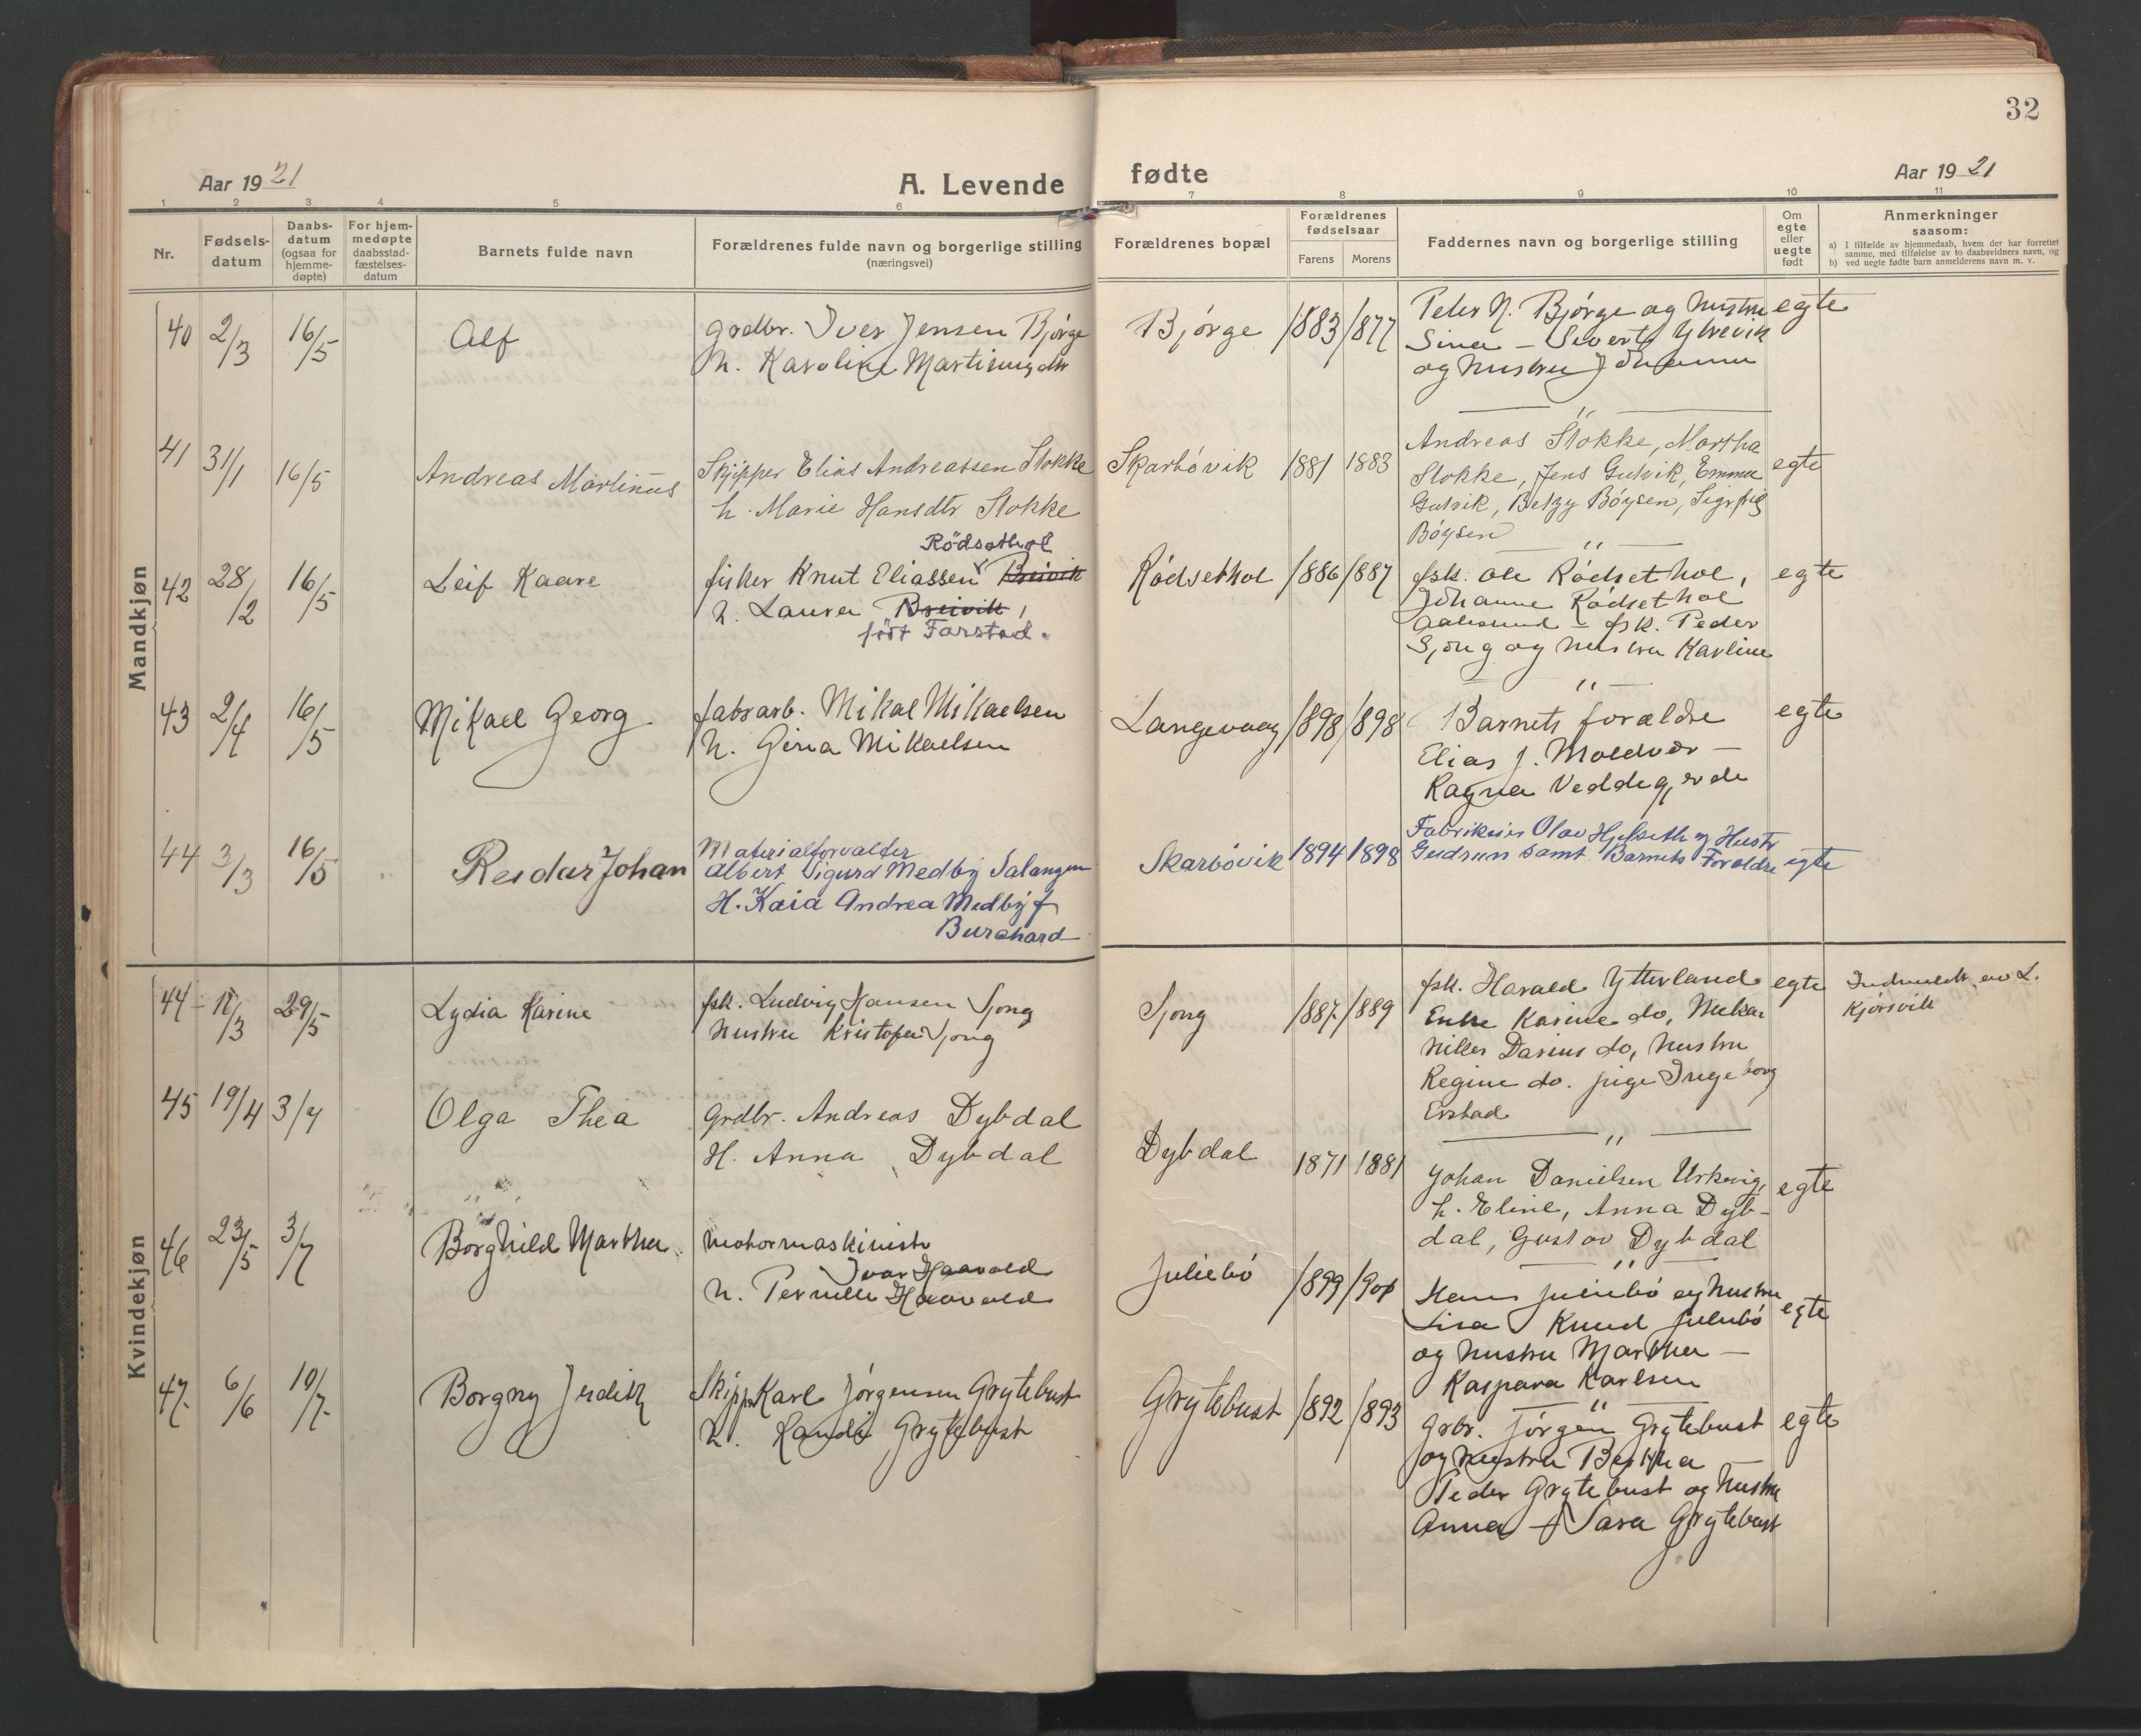 32
Aar 1921
A. Levende
fødte
Aar 1921
1 2 3 4 5 6 7 8 9 10 11
Nr.
Fødsels-
datum
Daabs-
datum
(ogsaa for
hjemme-
døpte)
For hjem-
medøpte
daabsstad-
fæstelses-
datum
Barnets fulde navn
Forældrenes fulde navn og borgerlige stilling
(næringsvei)
Forældrenes bopæl
Forældrenes
fødselsaar
Farens Morens
Faddernes navn og borgerlige stilling
Om
egte
eller
uegte
født
Anmerkninger
saasom:
a) I tilfælde av hjemmedaab, hvem der har forrettet
samme, med tilføielse av to daabsvidners navn, og
b) ved uegte fødte barn anmelderens navn m. v.
Mandkjøn
40 2/3 16/5 Alf
grdbr. Iver Jensen Bjørge
h. Karoline Martinusdtr
Bjørge 1883 1877
Peter N. Bjørge og hustru
Sina – Sivert Ytrevik
og hustru Johanna
egte
41 31/1 16/5 Andreas Martinus
Skipper Elias Andreassen Stokke
h. Marie Hansdtr Stokke
Skarbövik 1881 1883
Andreas Stokke, Martha
Stokke, Jens Gutvik, Emma
Gutvik, Betzy Böysen, Sigrfig
Böysen
egte
42 28/2 16/5 Leif Kaare
Rödsethol
fisker Knut Eliassen Breivik
h. Laura Breivik,
født Farstad.
Rödsethol 1886 1887
fsk. Ole Rödsethol,
Johanne Rödsethol
Aalesund – fsk. Peder
Sjong og hustru Karline
egte
43 2/4 16/5 Mikael Georg
fabrarb. Mikal Mikaelsen
h. Gina Mikaelsen
Langevaag 1898 1898
Barnets forældre
Elias J. Moldvær –
Ragna Veddegjerde
egte
44 3/3 16/5 Reidar Johan
Materialforvalter
Albert Sigurd Medby Salangen
H. Kaia Andrea Medby f
Burchard
Skarbövik 1894 1898
Fabrikeier Olav Hjelseth og Hustr
Gudrun samt Barnets Forældre
egte
Kvindekjøn
44 11/3 29/5 Lydia Karine
fsk. Ludvig Hansen Sjong
hustru Kristofa Sjong
Sjong 1887 1889
fsk. Harald Ytterland
Enke Karine do,
Darius do, hustru
Regine do. pige Ingeborg
Erstad
egte
Indmeldt av L.
Kjörsvik
45 19/4 3/7 Olga Thea
Grdbr. Andreas Dybdal
H. Anna Dybdal
Dybdal 1871 1881
Johan Danielsen Urkevig,
h. Eline, Anna Dyb-
dal, Gustav Dybdal
egte
46 23/5 3/7 Borghild Martha
motormaskinist
Ivar Haavold
h. Pernille Haavold
Juliebö 1899 1901
Hans Juliebö og hustru
Lisa Knud Juliebö
og hustru Martha –
Kaspara Karlsen
egte
47. 6/6 10/7. Borgny Judith
Skipp. Karl Jörgensen Grytebust
h. Randi Grytebust
Grytebust 1892 1893
Grbr. Jörgen Grytebust
og hustru Bertha
Peder Grytebust og hustru
Anna – Sara Grytebust
egte